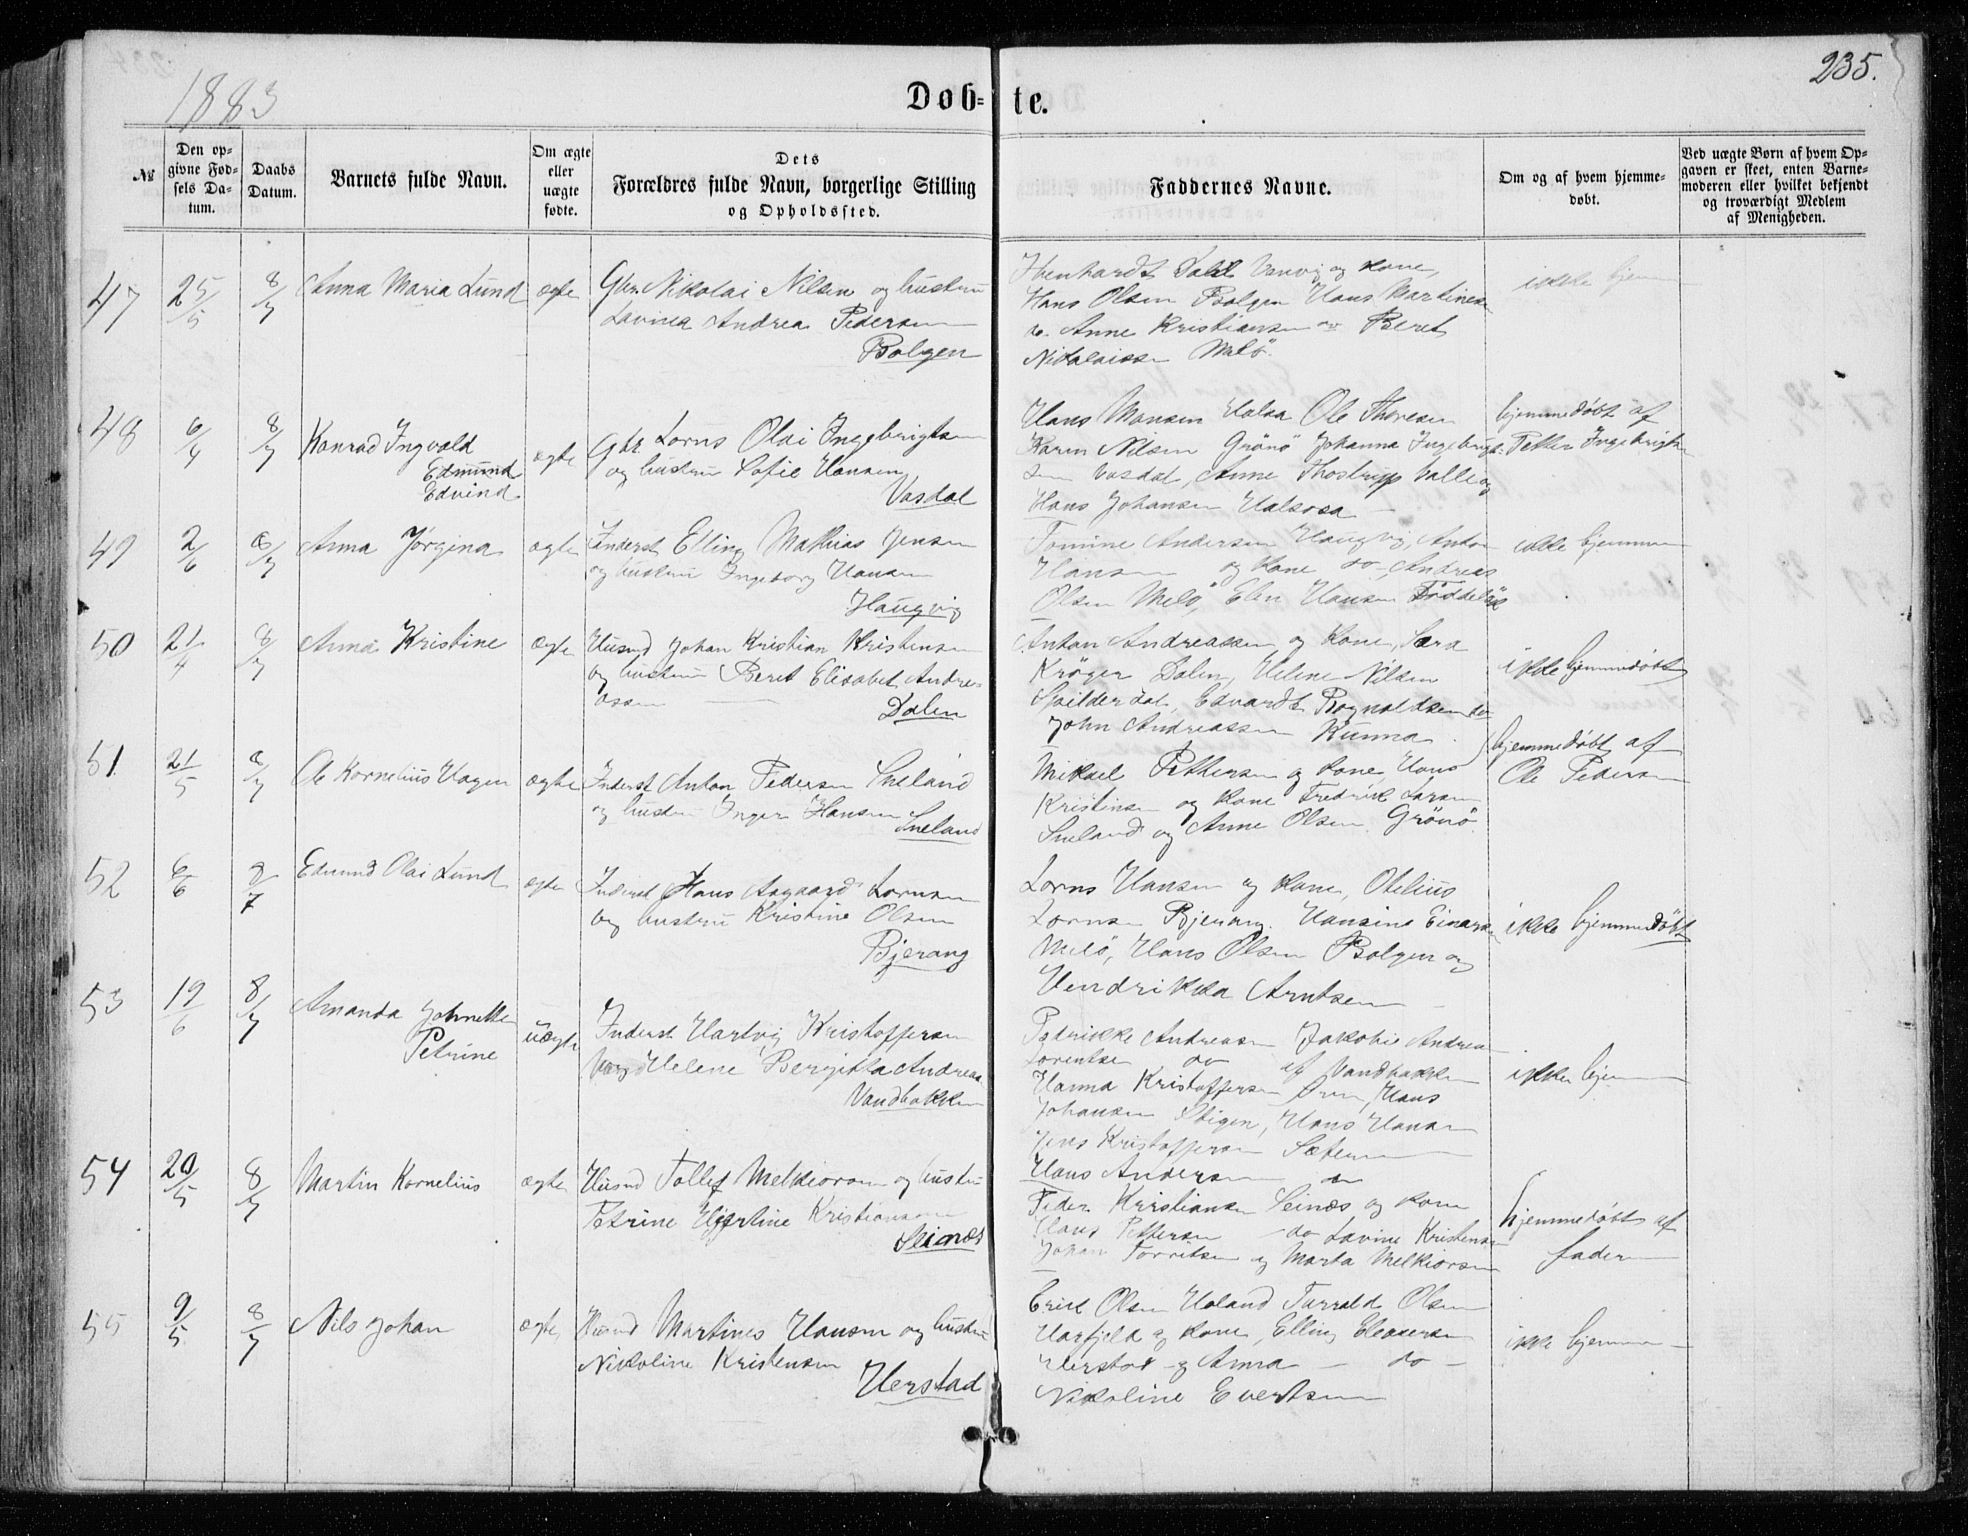 1883
Døbte.
235.
№
Den opgivne Fødsels Datum.
Daabs Datum.
Barnets fulde Navn.
Om ægte eller uægte fødte.
Dets Forældres fulde Navn, borgerlige Stilling og Opholdssted.
Faddernes Navne.
Om og af hvem hjemmedøbt.
Ved uægte Børn af hvem Opgaven er skeet, enten Barnemoderen eller hvilket bekjendt og troværdigt Medlem af Menigheden.
47 25/5 8/7 Anna Maria Lund ægte Gbr. Nikolai Nilsen og hustru
Lavina Andrea Pedersen
Bolgen
Dahl og Kone,
Hans Olsen Bolgen Hans Martines
Anne Kristiansen Beret
Nikolaissen Melö.
ikke hjem
48 6/4 8/7 Konrad Ingvald
Edmund
Edvind
ægte Gbr. Lorns Olai Ingebrigtsen
og hustru Sofie Hansen
Vasdal
Hans Monsen Halsa Ole Thoresen
Karen Nilsen Grönö Johanna Ingebrigt-
sen Vasdal, Anne Thostrup Valle og
Hans Johansen Halsosa
hjemmedöbt af
Petter Ingebrigtsen
49 2/6 8/7 Anna Jörgina ægte Inderst Elling Mathias Jensen
og hustru Ingeborg Hansen
Haugvig
Tomine Andersen Haugvig, Anton
Hansen og Kone do, Andreas
Olsen Melö, Elen Hansen
ikke hjemme
50 21/4 8/7 Anna Kristine ægte Husmd Johan Kristian Kristensen
og hustru Beret Elisabet Andre-
assen
Dalen
Anton Andreassen og Kone, Sara
Kröger Dalen, Helene Nilsen
Spilderdal, Edvardt Rognaldsen do
John Andreassen Kunna
ikke hjemmedöbt
51 21/5 8/7 Ole Kornelius Hagen ægte Inderst Anton Pedersen Sneland
og hustru Inger Hansen
Sneland
Mikael Pettersen og Kone, Hans
Kristensen og Kone Fredrik Larsen
Sneland og Anne Olsen Grönö
hjemmedöbt af
Ole Pedersen
52 6/6 8/7 Edmund Olai Lund ægte Inderst Hans Aagaard Lornsen
og hustru Kristine Olsen
Bjerang
Lorns Hansen og Kone, Otelius
Lornsen Bjerang. Hansine Einarsen
Melö, Hans Olsen Bolgen og
Hendrikka Arntsen
ikke hjemmedöbt
53 19/6 8/7 Amanda Johnette
Petrine
uægte Inderst Hartvig Kristoffersen
Helene Bergitta Andreas.
Vandbakken
Andreasen Jakobie Andrea
Lorentsen do af Vandbakken
Hanna Kristoffersen Hans
Johansen Stigen, Hans Hansen
Jens Kristoffersen Sæteren
ikke hjem
54 20/5 8/7 Martin Kornelius ægte Husmd Tollef Melkiorsen og hustru
Petrine Kristiansen
Seinæs
Hans Andersen do
Peder Kristiansen Seinæs og Kone
Hans Pettersen do Lavine Kristensen
Johan Torritsen og Marta Melkiorsen
hjemmedöbt af
faderen
55 9/5 8/7 Nils Johan ægte Husmd Martines Hansen og hustru
Nikoline Kristensen
Herstad
Erik Olsen Holand Torrald Olsen
Harfjeld og Kone, Elling Eleasersen
Herstad og Anna do
Nikoline Evertsen
ikke hjemme